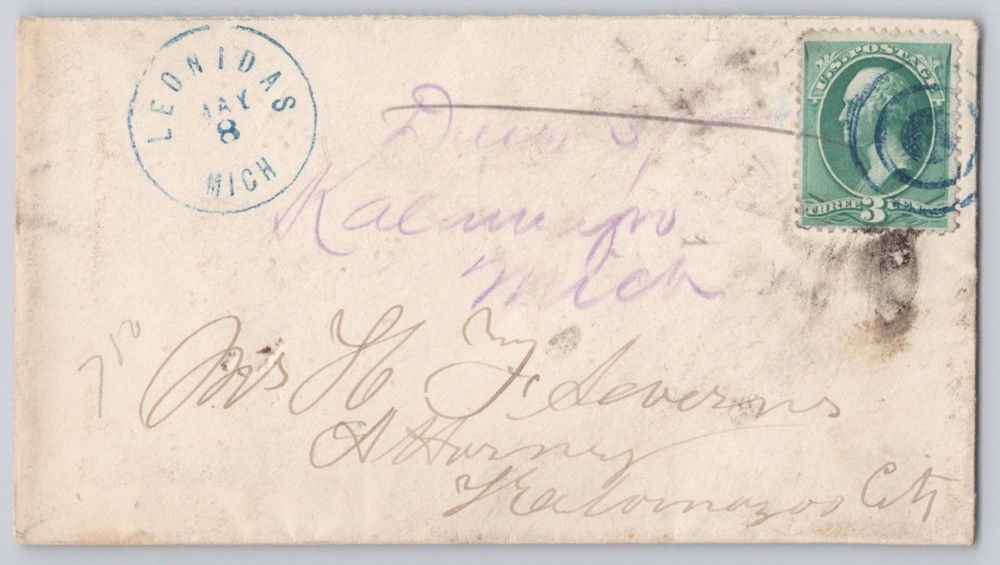 LEONIDAS
MAY
8
MICH
U.S. POSTAGE
THREE 3 CENTS
Kalamazoo
Mich
Mrs H F Severns
Attorney
Kalamazoo City